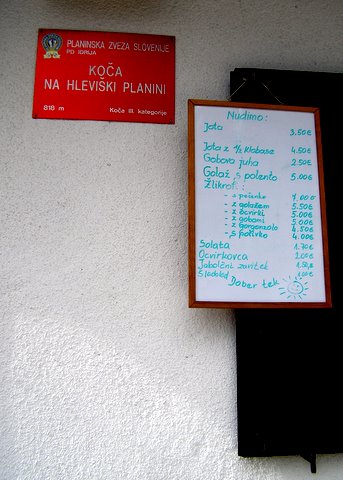 PLANINSKA ZVEZA SLOVENIJE
PD IDRIJA
KOČA
NA HLEVIŠKI PLANINI
818 m Koča III. kategorije
Nudimo:
Jota 3.50€
Jota z 1/2 klobase 4.50€
Gobova juha 2.50€
Golaž s polento 5.00€
Žlikrofi:
- s pečenko 7.00€
- z golažem 5.50€
- z ocvirki 5.00€
- z gobami 5.00€
- z gorgonzolo 4.50€
- s potivko 4.00€
Solata 1.70€
Ocvirkovca 2.00€
Jabolčni zavitek 1.50€
Sladoled 1.00€
Dober tek